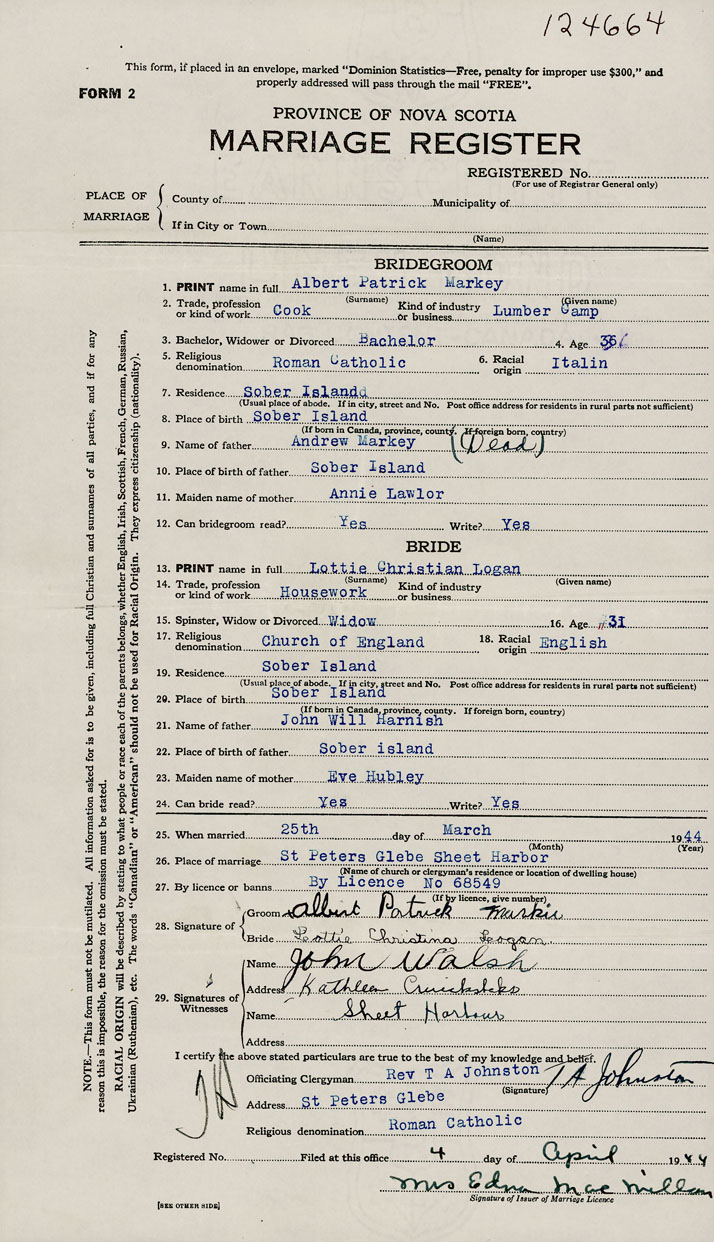 124664
This form, if placed in an envelope, marked "Dominion Statistics—Free, penalty for improper use $300," and
properly addressed will pass through the mail "FREE".
FORM 2
PROVINCE OF NOVA SCOTIA
MARRIAGE REGISTER
REGISTERED No.
(For use of Registrar General only)
PLACE OF MARRIAGE
County of Municipality of
If in City or Town
(Name)
BRIDEGROOM
1. PRINT name in full Albert Patrick Markey
(Surname) (Given name)
2. Trade, profession or kind of work Cook Kind of industry or business Lumber Camp
3. Bachelor, Widower or Divorced Bachelor 4. Age
5. Religious denomination Roman Catholic 6. Racial origin Italin
7. Residence Sober Islandd
(Usual place of abode. If in city, street and No. Post office address for residents in rural parts not sufficient)
8. Place of birth Sober Island
(If born in Canada, province, county. If foreign born, country)
9. Name of father Andrew Markey (Dead)
10. Place of birth of father Sober Island
11. Maiden name of mother Annie Lawlor
12. Can bridegroom read? Yes Write? Yes
BRIDE
13. PRINT name in full Lottie Christian Logan
(Surname) (Given name)
14. Trade, profession or kind of work Housework Kind of industry or business
15. Spinster, Widow or Divorced Widow 16. Age 31
17. Religious denomination Church of England 18. Racial origin English
19. Residence Sober Island
(Usual place of abode. If in city, street and No. Post office address for residents in rural parts not sufficient)
20. Place of birth Sober Island
(If born in Canada, province, county. If foreign born, country)
21. Name of father John Will Harnish
22. Place of birth of father Sober island
23. Maiden name of mother Eve Hubley
24. Can bride read? Yes Write? Yes
25. When married 25th day of March 1944
(Month) (Year)
26. Place of marriage St Peters Glebe Sheet Harbor
(Name of church or clergyman's residence or location of dwelling house)
27. By licence or banns By Licence No 68549
(If by licence, give number)
28. Signature of
Groom Albert Patrick
Bride Lottie Christina Logan.
29. Signatures of Witnesses
Name John Walsh
Address Kathleen
Name Sheet Harbour
Address
I certify the above stated particulars are true to the best of my knowledge and belief.
Officiating Clergyman Rev T A Johnston T A Johnston
(Signature)
Address St Peters Glebe
Religious denomination Roman Catholic
Registered No. Filed at this office 4 day of April 1944
Mrs Edna MacMillan
Signature of Issuer of Marriage Licence
[SEE OTHER SIDE]
NOTE.—This form must not be mutilated. All information asked for is to be given, including full Christian and surnames of all parties, and if for any
reason this is impossible, the reason for the omission must be stated.
RACIAL ORIGIN will be described by stating to what people or race each of the parents belongs, whether English, Irish, Scottish, French, German, Russian,
Ukrainian (Ruthenian), etc. The words "Canadian" or "American" should not be used for Racial Origin. They express citizenship (nationality).